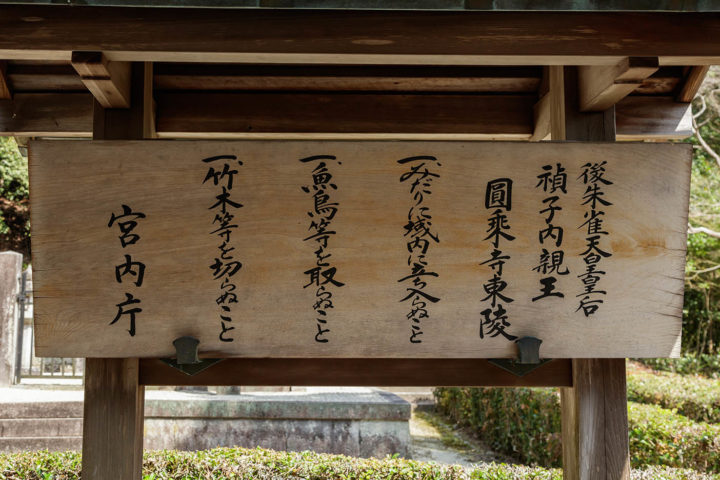 後朱雀天皇皇后
禎子内親王
圓乗寺東陵
一、みだりに域内に立ち入らぬこと
一、魚鳥等を取らぬこと
一、竹木等を切らぬこと
宮内庁